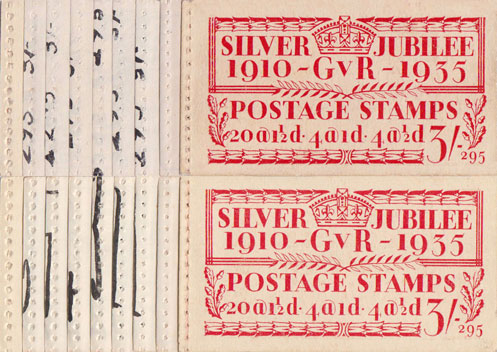 SILVER JUBILEE
1910 - GvR - 1935
POSTAGE STAMPS
20@1½d · 4@1d · 4@½d 3/-
295
SILVER JUBILEE
1910 - GvR - 1935
POSTAGE STAMPS
20@1½d · 4@1d · 4@½d 3/-
295